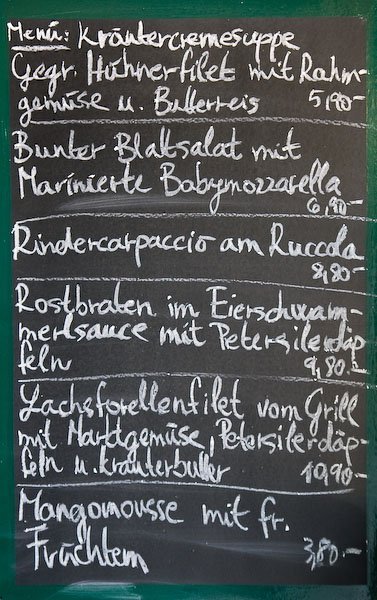 Menü: Kräutercremesuppe
Gegr. Hühnerfilet mit Rahm-
gemüse u. Butterreis 5,90-
Bunter Blattsalat mit
Marinierte Babymozzarella
6,90-
Rindercarpaccio am Ruccola
8,80-
Rostbraten im Eierschwam-
merlsauce mit Petersilerdäp
feln 9,80.-
Lachsforellenfilet vom Grill
mit Marktgemüse, Petersilerdäp-
feln u. Kräuterbutter 10,90-
Mangomousse mit fr.
Früchten 3,80.-